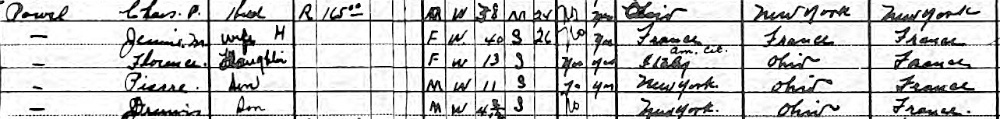 Powel Chas. P. Head R 165⁰⁰ M W 38 M 24 No Yes Ohio New York New York
— Jennie M Wife H F W. 40 S 26 No Yes France France France
— Florence. Daughter F W 13 S Yes Yes Italy Am. Cit. Ohio France
— Pierre. Son M W 11 S Yes New York Ohio France
— Son M W S No New York. Ohio France.